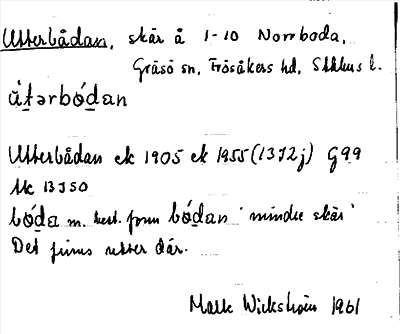 Utterbådan, skär å 1-10 Norrboda,
Gräsö sn, Frösåkers hd, Sthlms l.
ù̀tərbó̱dan
Utterbådan ek 1905 ek 1955 (13I2j) G99
Uc 13 I SO
bó̱da m. best. form bó̱dan 'mindre skär'
Det finns utter där.
Wickström 1961